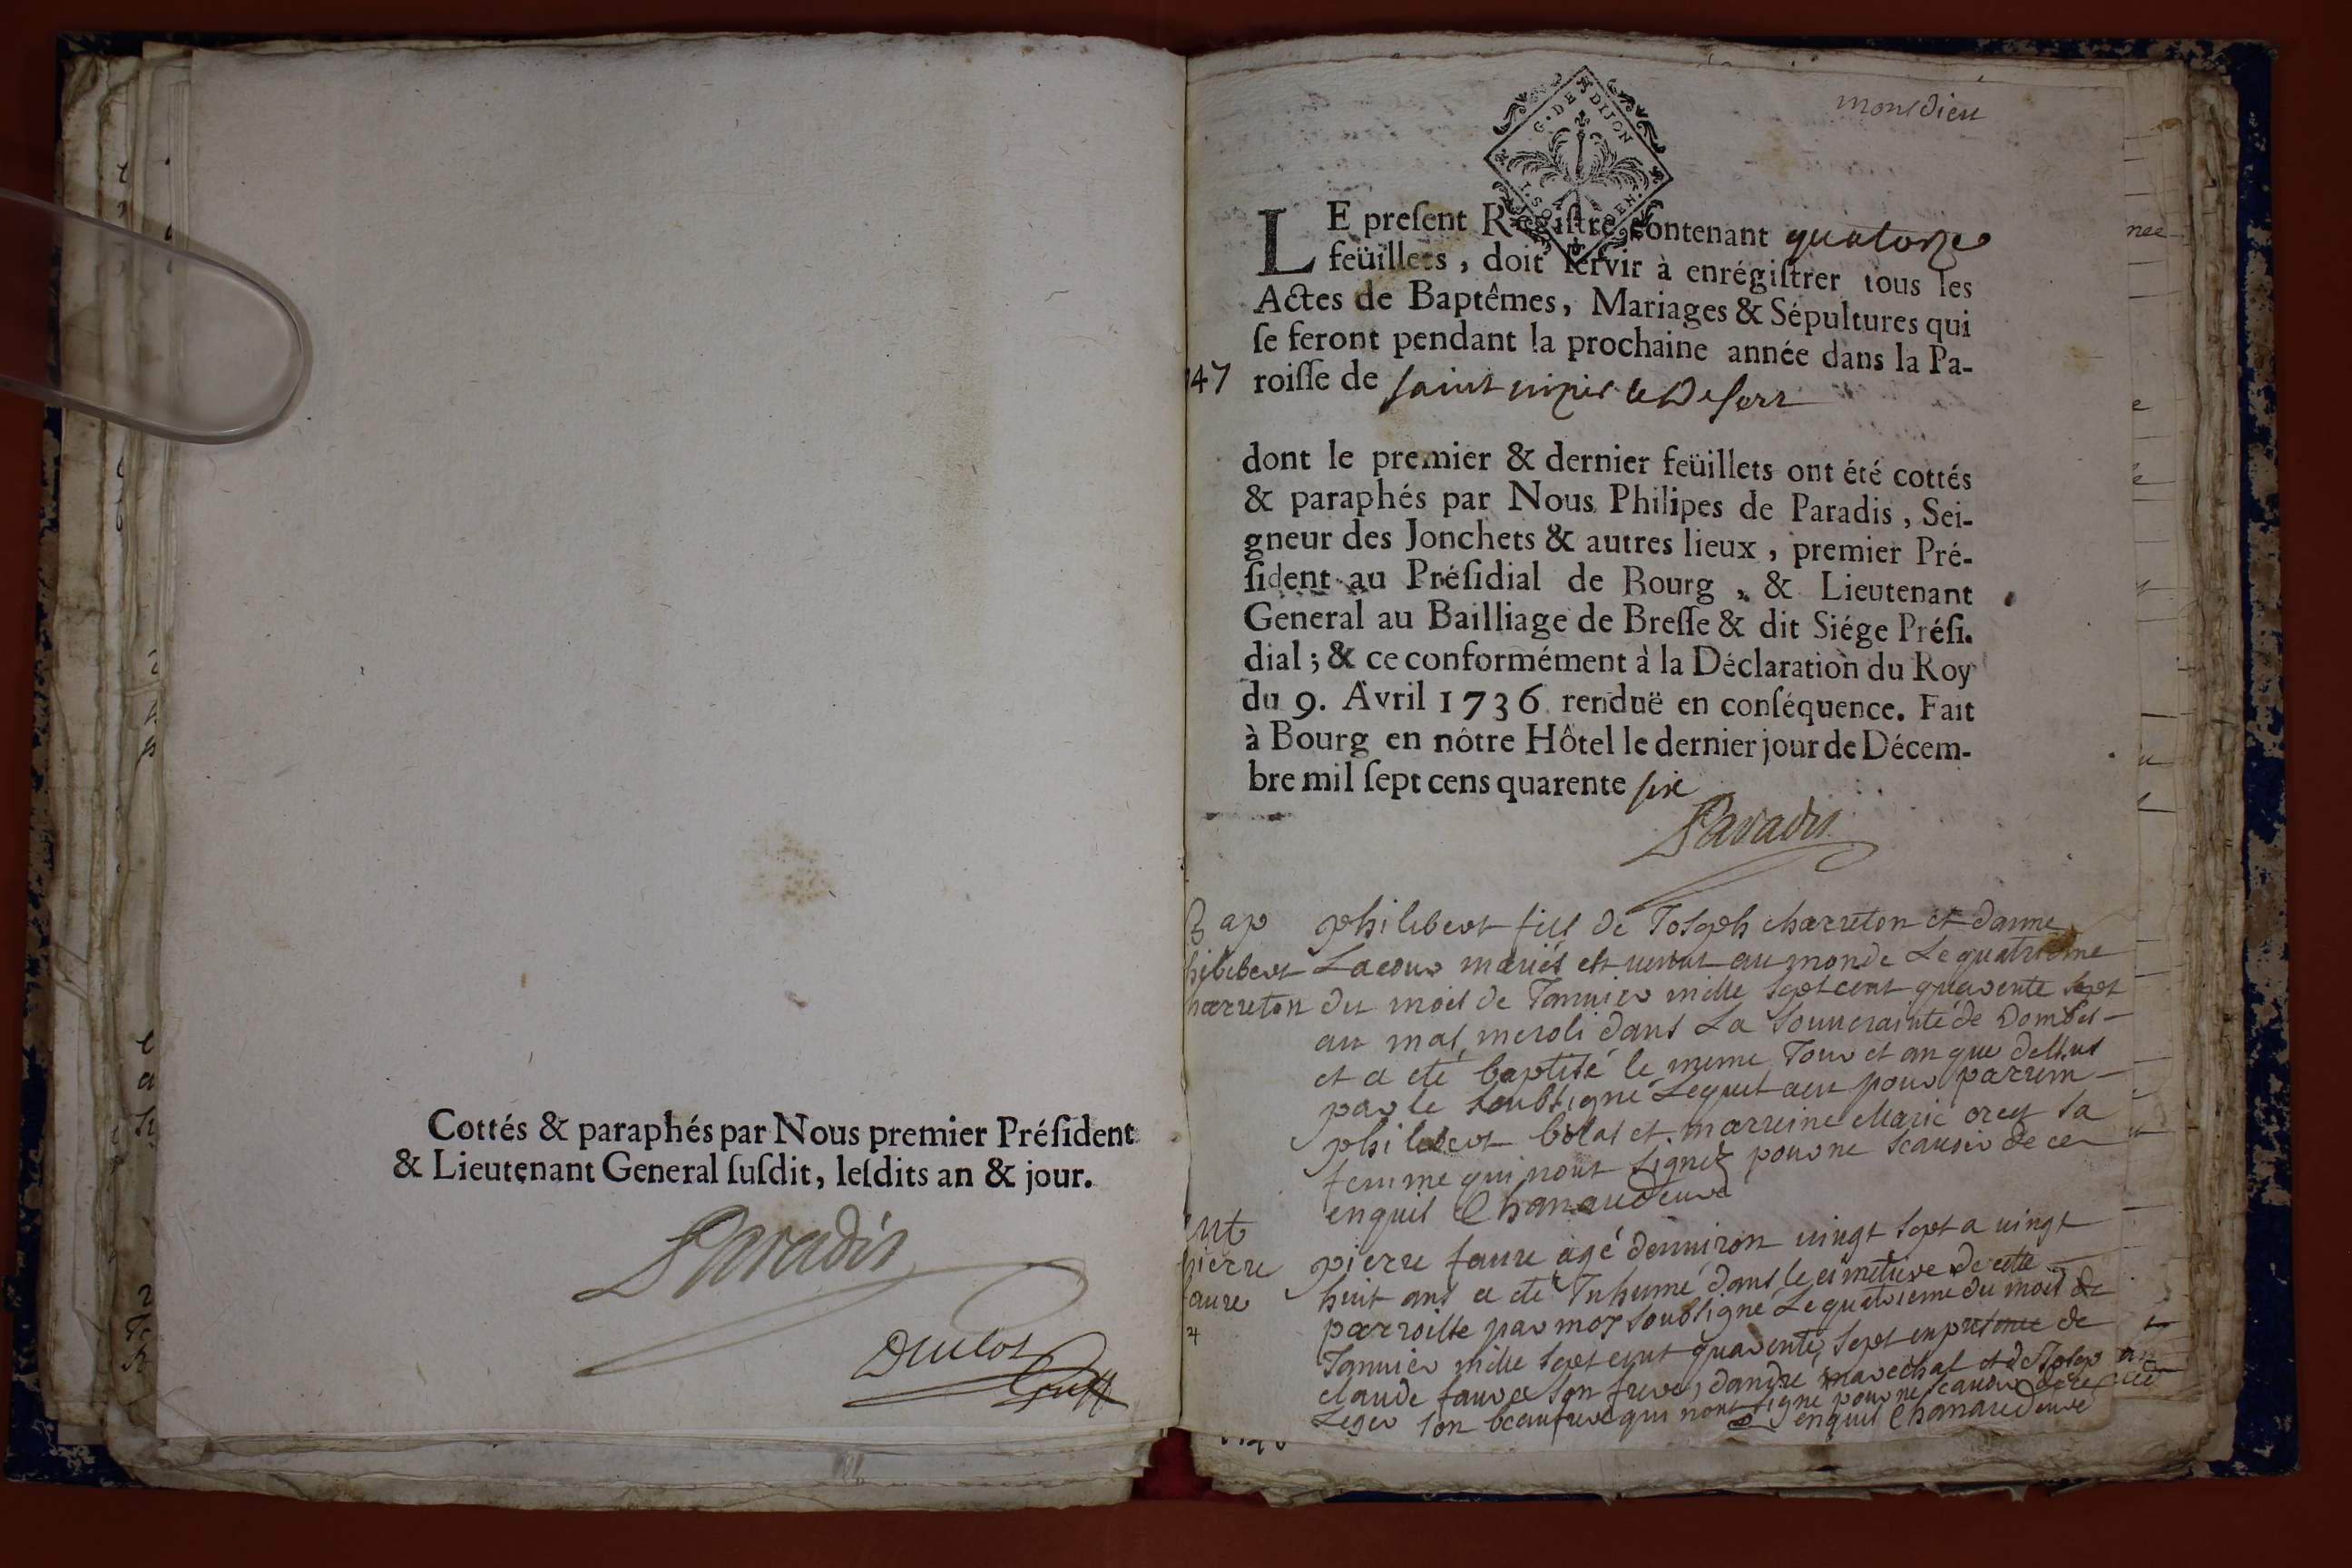 Cottés & paraphés par Nous premier Préſident
& Lieutenant General ſuſdit, leſdits an & jour.
Paradis
Duclos
Greff
monsdieu
G. DE DIJON
LE preſent Regiſtre contenant quatorze
feüillets, doit ſervir à enrégiſtrer tous les
Actes de Baptêmes, Mariages & Sépultures qui
ſe feront pendant la prochaine année dans la Pa-
147 roiſſe de saint nizier le Desert
dont le premier & dernier feüillets ont été cottés
& paraphés par Nous Philipes de Paradis, Sei-
gneur des Jonchets & autres lieux, premier Pré-
ſident au Préſidial de Bourg, & Lieutenant
General au Bailliage de Breſſe & dit Siége Préſi-
dial; & ce conformément à la Déclaration du Roy
du 9. Avril 1736 renduë en conſéquence. Fait
à Bourg en nôtre Hôtel le dernier jour de Décem-
bre mil ſept cens quarente six
Paradis
Bap philibert fils de Joseph charreton et danne
hilibert Lacour mariés est venut au monde Le quatrieme
harreton du mois de Janvier mille sept cent quarente sept
au mas meroli dans La Souverainté de Dombes
et a eté baptisé le meme Jour et an que dessus
par le soubsigné Lequel a eu pour parrein
philibert bolas et marreine Marie orcet sa
femme qui nont signez pour ne scavoir de ce
enquis Chanaudeuvre
ent
pierre pierre faure agé denuiron vingt sept a vingt
aure huit ans a eté Inhumé dans le cimetiere de cette
4 parroisse par moy soubsigné Le quatrieme du mois de
Janvier mille sept cent quarente sept en presence de
claude faure son frere, dandré marechal et de Josep
Leger son beaufrere qui nont signé pour ne scavoir de ce
enquis Chanaudeuvre